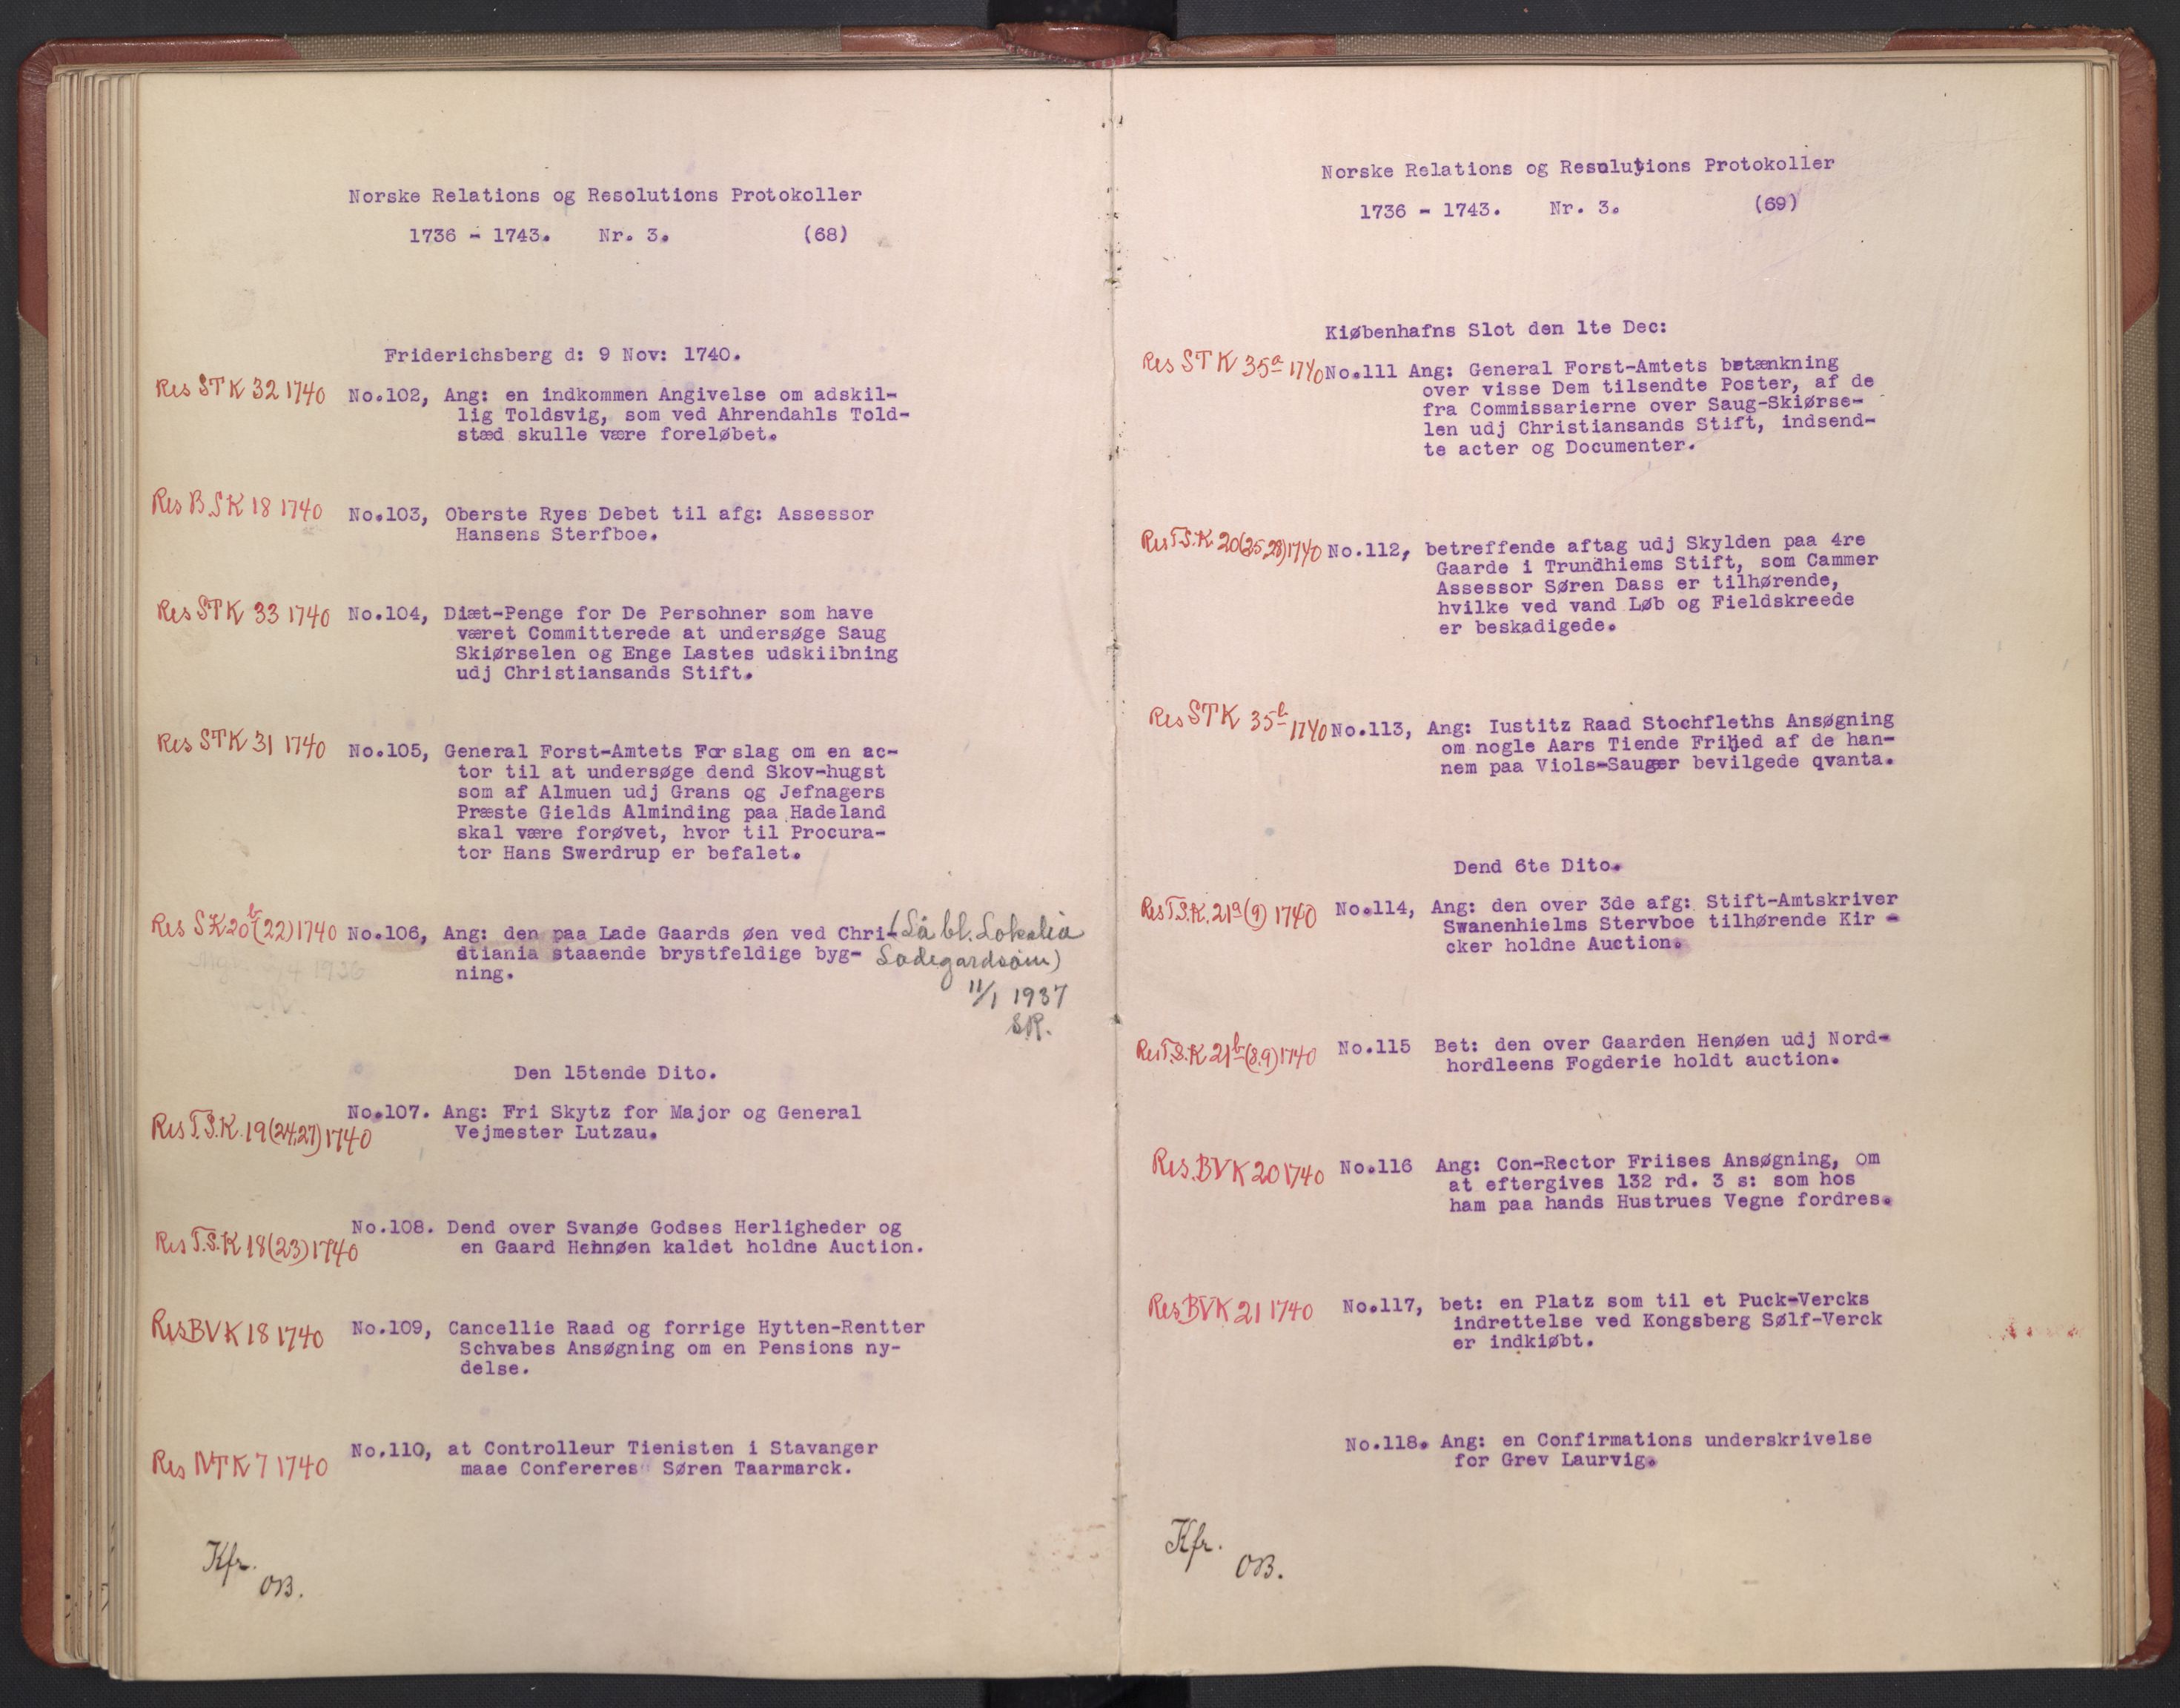 Norske Relations og Resolutions Protokoller
1736 - 1743. Nr. 3. (68)
Friderichsberg d: 9 Nov: 1740.
Res STK 32 1740 No.102, Ang: en indkommen Angivelse om adskil-
lig Toldsvig, som ved Ahrendahls Told-
stæd skulle være foreløbet.
Res B.S K 18 1740 No.103, Oberste Ryes Debet til afg: Assessor
Hansens Sterfboe.
Res STK 33 1740 No.104, Diæt-Penge for De Persohner som have
været Committerede at undersøge Saug
Skiørselen og Enge Lastes udskiibning
udj Christiansands Stift.
Res STK 31 1740 No.105, General Forst-Amtets Forslag om en ac-
tor til at undersøge dend Skov-hugst
som af Almuen udj Grans og Jefnagers
Præste Gields Alminding paa Hadeland
skal være forøvet, hvor til Procura-
tor Hans Swerdrup er befalet.
Res SK 20b (22) 1740 No.106, Ang: den paa Lade Gaards øen ved Chri- (Lå bl. Lokalia
stiania staaende brystfeldige byg- Ladegardsøin)
ning.
11/1 1937
SR.
Den 15tende Dito.
Res T.S.K. 19 (24,27) 1740 No.107. Ang: Fri Skytz for Major og General
Vejmester Lutzau.
Res T.S.K 18 (23) 1740 No.108. Dend over Svanøe Godses Herligheder og
en Gaard Hennøen kaldet holdne Auction.
Res BVK 18 1740 No.109, Cancellie Raad og forrige Hytten-Rentter
Schvabes Ansøgning om en Pensions ny-
delse.
Res NTK 7 1740 No.110, at Controlleur Tienisten i Stavanger
maae Confereres Søren Taarmarck.
Kfr.
OB.
Norske Relations og Resolutions Protokoller
1736 - 1743. Nr. 3. (69)
Kiøbenhafns Slot den 1te Dec:
Res STK 35a 1740 No.111 Ang: General Forst-Amtets betænkning
over visse Dem tilsendte Poster, af de
fra Commissarierne over Saug-Skiørse-
len udj Christiansands Stift, indsend-
te acter og Documenter.
Res T.S.K. 20 (25,28) 1740 No.112, betreffende aftag udj Skylden paa 4re
Gaarde i Trundhiems Stift, som Cammer
Assessor Søren Dass er tilhørende,
hvilke ved vand Løb og Fieldskreede
er beskadigede.
Res STK 35b 1740 No.113, Ang: Iustitz Raad Stochfleths Ansøgning
om nogle Aars Tiende Frihed af de han-
nem paa Viols-Sauger bevilgede qvanta.
Dend 6te Dito.
Res T.S.K. 21a (9) 1740 No.114, Ang: den over 3de afg: Stift-Amtskriver
Swanenhielms Stervboe tilhørende Kir -
cker holdne Auction.
Res T.S.K 21b (8.9) 1740 No.115 Bet: den over Gaarden Henøen udj Nord-
hordleens Fogderie holdt auction.
Res. BVK 20 1740 No.116 Ang: Con-Rector Friises Ansøgning, om
at eftergives 132 rd. 3 s: som hos
ham paa hands Hustrues Vegne fordres.
Res BVK 21 1740 No.117, bet: en Platz som til et Puck-Vercks
indrettelse ved Kongsberg Sølf-Verck
er indkiøbt.
No.118. Ang: en Confirmations underskrivelse
for Grev Laurvig.
Kfr.
OB.